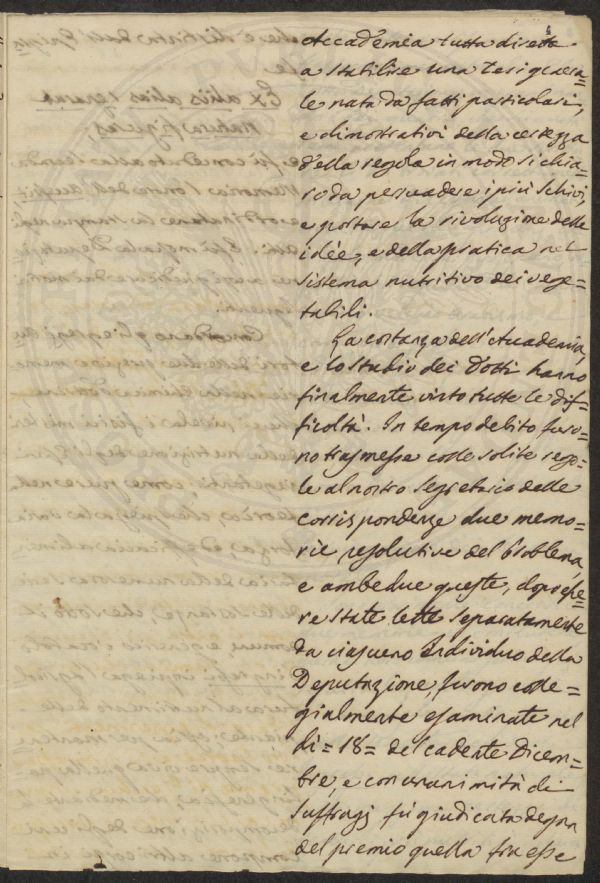 Accademia tutta diretta
a stabilire una tesi genera=
le nata da fatti particolari,
e dimostrativi della certezza
della regola in modo si chia=
ro da persuadere i più schivi,
e portare la rivoluzione delle
idée, e della pratica nel
sistema nutritivo dei vege=
tabili.
La costanza dell'Accademia,
e lo studio dei Dotti hanno
finalmente vinto tutte le dif=
ficoltà. In tempo debito furo=
no trasmesse colle solite rego=
le al nostro Segretario delle
corrispondenze due memo=
rie resolutive del Problema
e ambedue queste, dopo esse=
re state lette separatamente
da ciascuno Individuo della
Deputazione, furono colle=
gialmente esaminate nel
dì = 18 = del cadente Dicem=
bre, e con unanimità di
suffragj fù giudicata degna
del premio quella fra esse